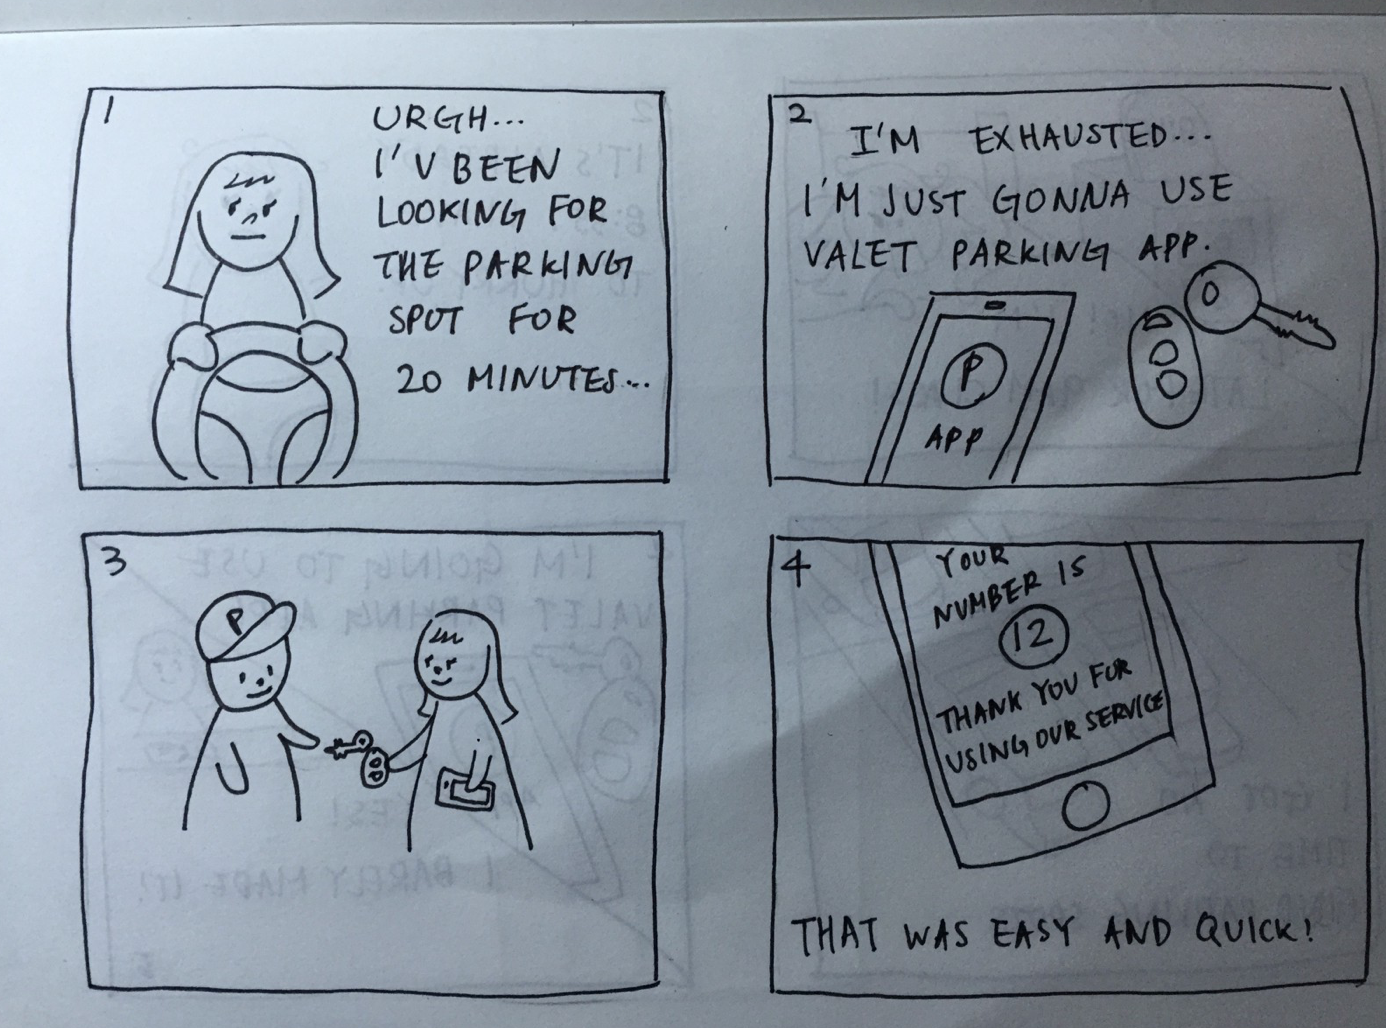 1
URGH...
I'V BEEN
LOOKING FOR
THE PARKING
SPOT FOR
20 MINUTES...
2
I'M EXHAUSTED...
I'M JUST GONNA USE
VALET PARKING APP.
P
APP
3
P
4
YOUR
NUMBER IS
12
THANK YOU FOR
USING OUR SERVICE
THAT WAS EASY AND QUICK!